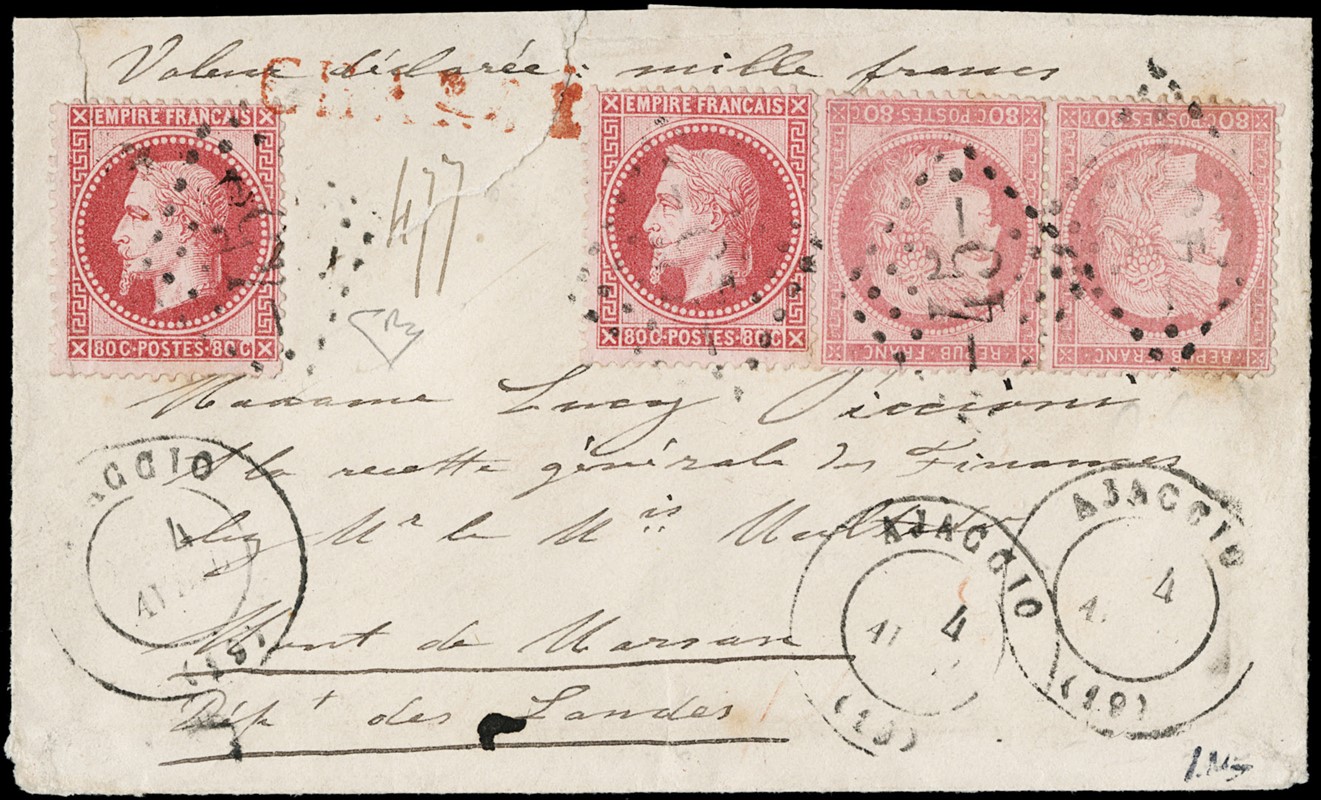 Valeur déclarée : mille francs
CHARGÉ
EMPIRE FRANÇAIS
80C·POSTES·80C
EMPIRE FRANÇAIS
80C·POSTES·80C
80C·POSTES·80C
REPUB·FRANC·
80C·POSTES·80C
REPUB·FRANC·
477
45
Madame Lucy Piccioni
à la recette générale des Finances
chez Mr le Mis
Mont de Marsan
Dépt des Landes
AJACCIO
4
(19)
AJACCIO
4
(19)
AJACCIO
4
(19)